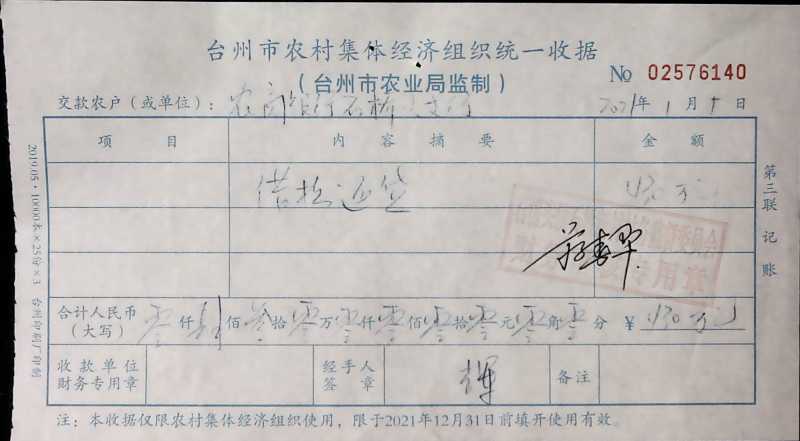 台州市农村集体经济组织统一收据
(台州市农业局监制)
No 02576140
交款农户(或单位): 农商银行石桥支行 2021年1月5日
项目 内容摘要 金额
430万元
合计人民币(大写) 零仟肆佰叁拾零万零仟零佰零拾零元零角零分 ¥ 430万元
收款单位财务专用章 经手人签章 备注
注:本收据仅限农村集体经济组织使用,限于2021年12月31日前填开使用有效。
第三联 记账
2019.05·10000本×25份×3 台州印刷厂印制